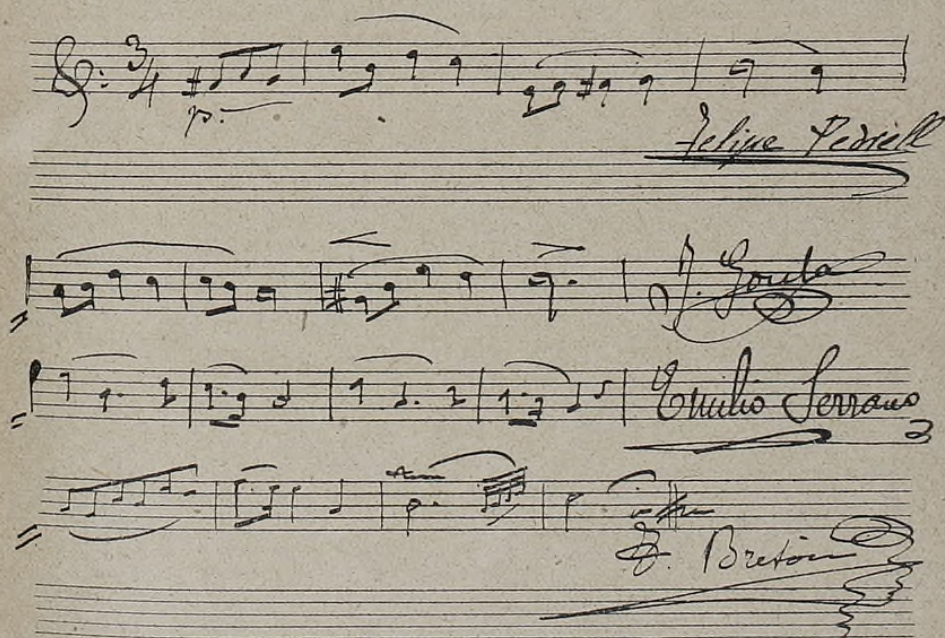 3/4
p.
Felipe Pedrell
J. Goula
Emilio Serrano
T. Bretón